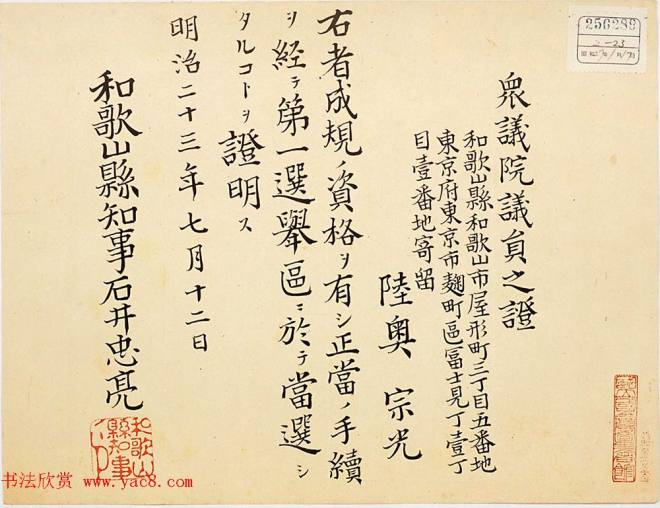 衆議院議員之證
和歌山縣和歌山市屋形町三丁目五番地
東京府東京市麹町區冨士見丁壹丁
目壹番地寄留
陸奥宗光
右者成規ノ資格ヲ有シ正當ノ手續
ヲ経テ第一選舉區ニ於テ當選シ
タルコトヲ證明ス
明治二十三年七月十二日
和歌山縣知事石井忠亮
和歌山縣知事之印
256289
书法欣赏 www.yac8.com